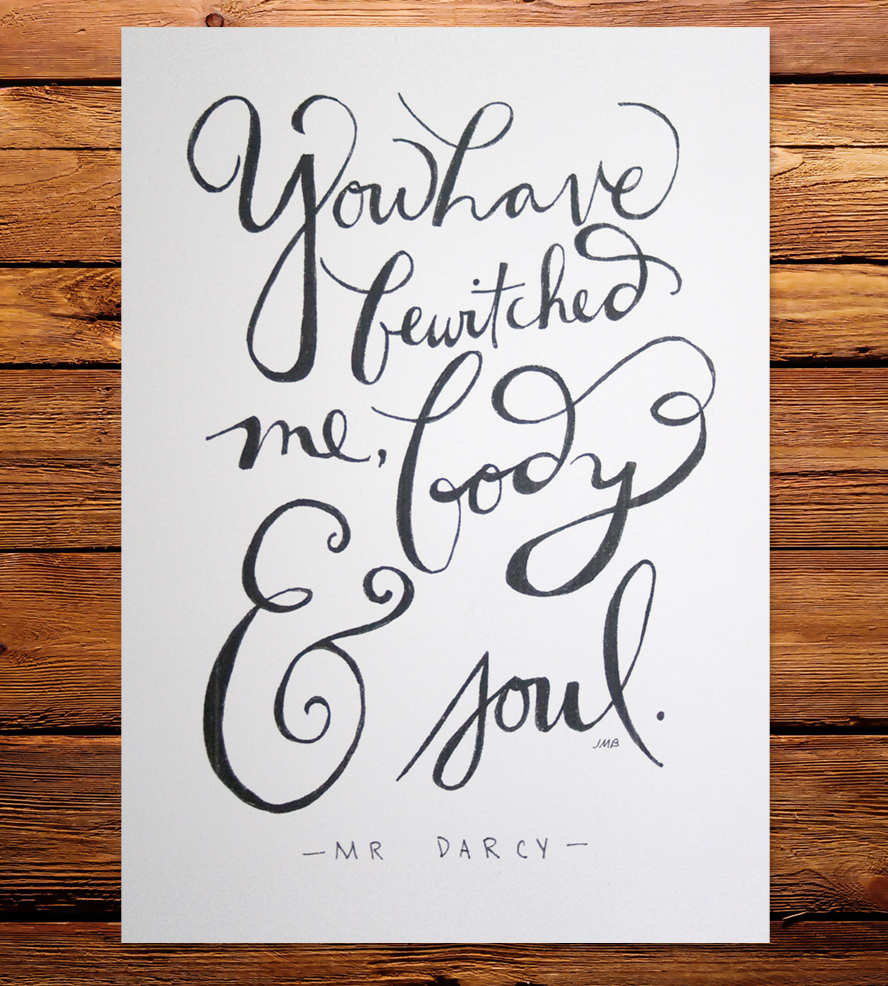 You have
bewitched
me, body
& soul.
JMB
—MR DARCY—